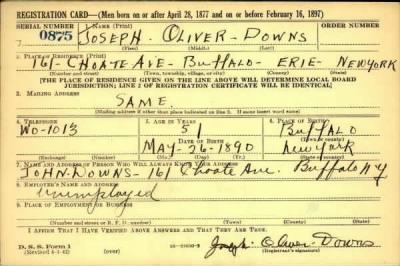 REGISTRATION CARD—(Men born on or after April 28, 1877 and on or before February 16, 1897)
SERIAL NUMBER 1. NAME (Print) ORDER NUMBER
0875 JOSEPH OLIVER-DOWNS
(First) (Middle) (Last)
2. PLACE OF RESIDENCE (Print)
161-CHOATE AVE-BUFFALO-ERIE-NEWYORK
(Number and street) (Town, township, village, or city) (County) (State)
[THE PLACE OF RESIDENCE GIVEN ON THE LINE ABOVE WILL DETERMINE LOCAL BOARD
JURISDICTION; LINE 2 OF REGISTRATION CERTIFICATE WILL BE IDENTICAL]
3. MAILING ADDRESS
SAME.
[Mailing address if other than place indicated on line 2. If same insert word same]
4. TELEPHONE 5. AGE IN YEARS 6. PLACE OF BIRTH
WO-1013 51 BUFFALO
DATE OF BIRTH (Town or county)
MAY-26-1890 NEWYORK
(Exchange) (Number) (Mo.) (Day) (Yr.) (State or country)
7. NAME AND ADDRESS OF PERSON WHO WILL ALWAYS KNOW YOUR ADDRESS
JOHN-DOWNS-161 Choate Ave. Buffalo NY
8. EMPLOYER'S NAME AND ADDRESS
Unemployed
9. PLACE OF EMPLOYMENT OR BUSINESS
(Number and street or R. F. D. number) (Town) (County) (State)
I AFFIRM THAT I HAVE VERIFIED ABOVE ANSWERS AND THAT THEY ARE TRUE.
D. S. S. Form 1
(Revised 4-1-42) Joseph Oliver-Downs
(Registrant's signature)